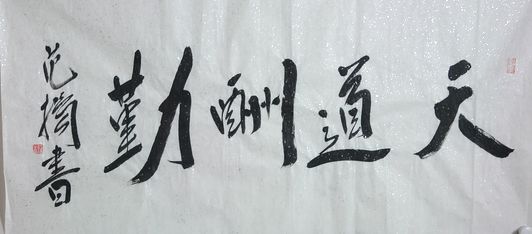 天道酬勤
范擒書